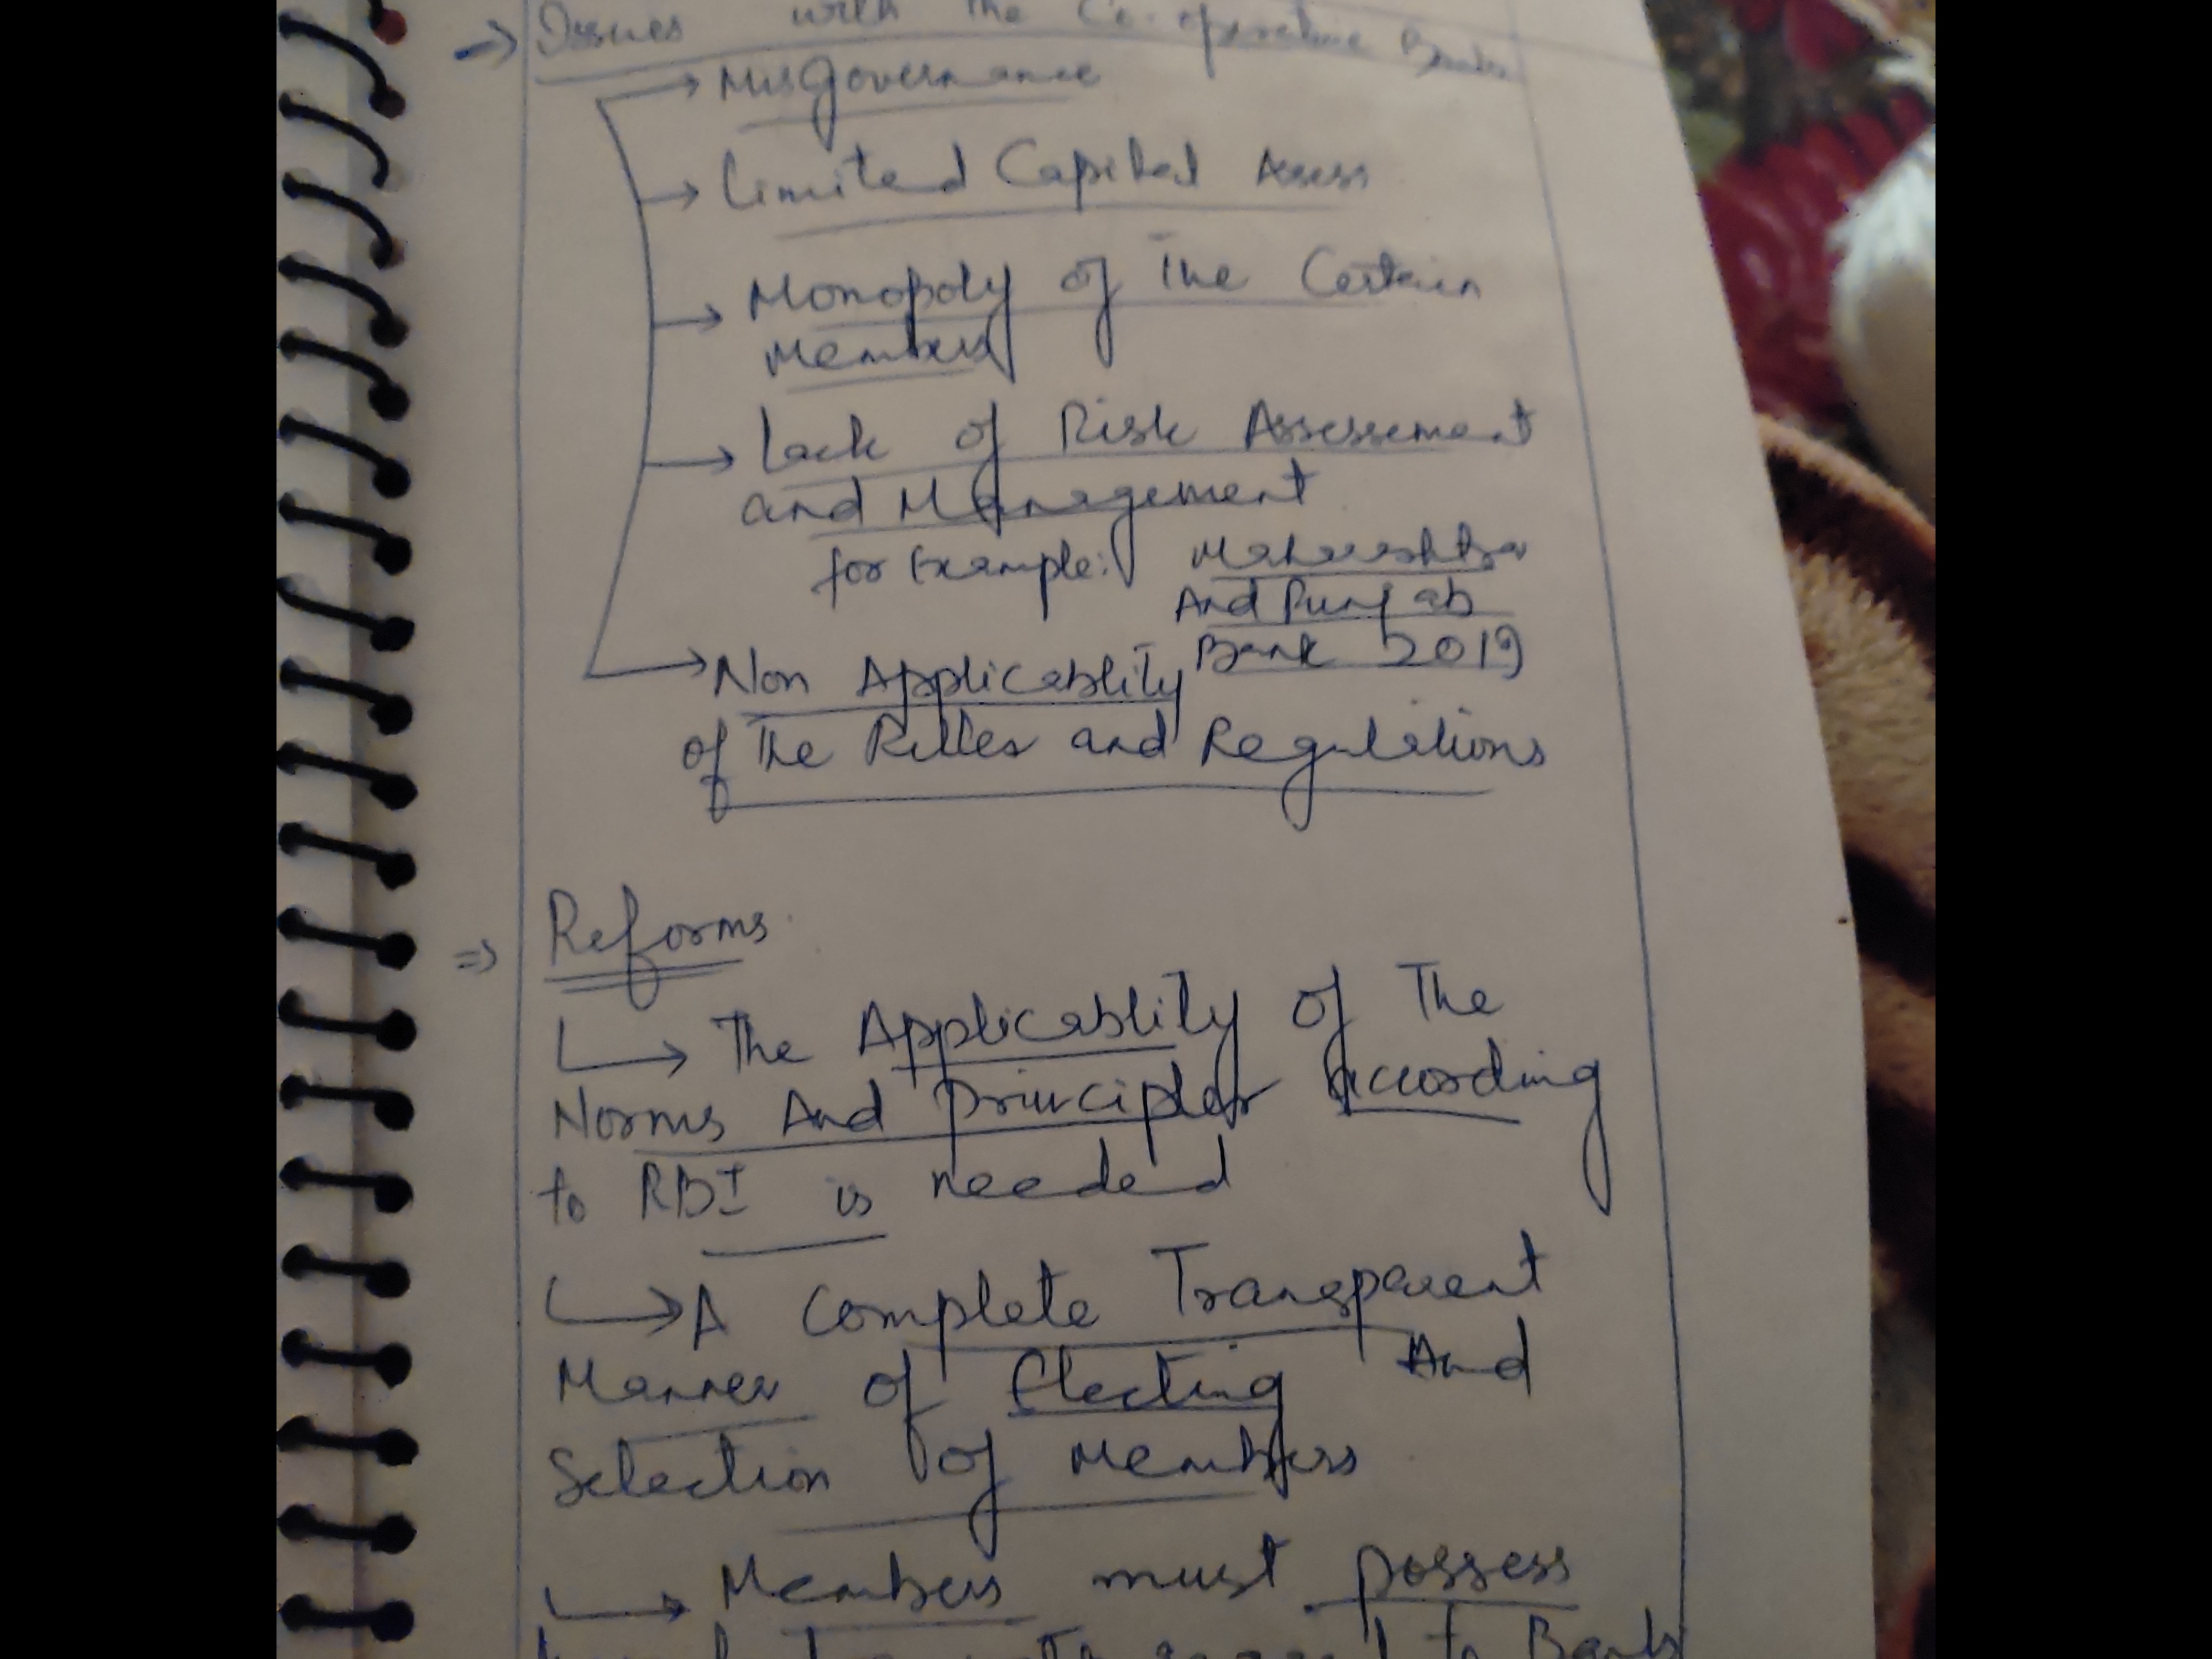 ⇒ Issues with the Co-operative Banks
→ MisGovernance
→ Limited Capital Assess
→ Monopoly of The Certain
Members
→ Lack of Risk Assessement
and Management
for Example: Maharashtra
And Punjab
Bank 2019
→ Non Applicablity
of The Rules and Regulations
⇒ Reforms
↳ The Applicablity of The
Norms And principles according
to RBI is needed
↳ A Complete Transparent
Manner of Electing And
Selection of Members
↳ Members must possess
to Banks